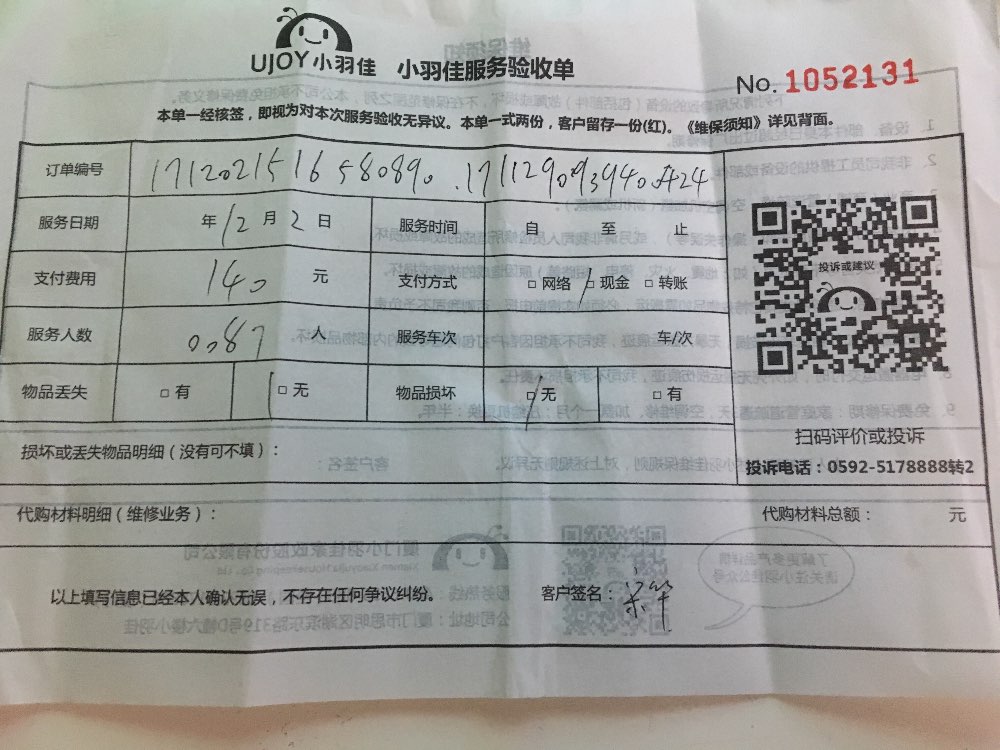 UJOY小羽佳 小羽佳服务验收单
No. 1052131
本单一经核签，即视为对本次服务验收无异议。本单一式两份，客户留存一份(红)。《维保须知》详见背面。
订单编号 1712021516580890 .17112909393940
服务日期 年 12 月 2 日 服务时间 自 至 止
支付费用 140 元 支付方式 □ 网络 □ 现金 □ 转账
服务人数 0087 人 服务车次 车/次
物品丢失 □ 有 □ 无 物品损坏 □ 无 □ 有
投诉或建议
扫码评价或投诉
投诉电话：0592-5178888转2
损坏或丢失物品明细（没有可不填）：
代购材料明细（维修业务）： 代购材料总额： 元
以上填写信息已经本人确认无误，不存在任何争议纠纷。 客户签名：